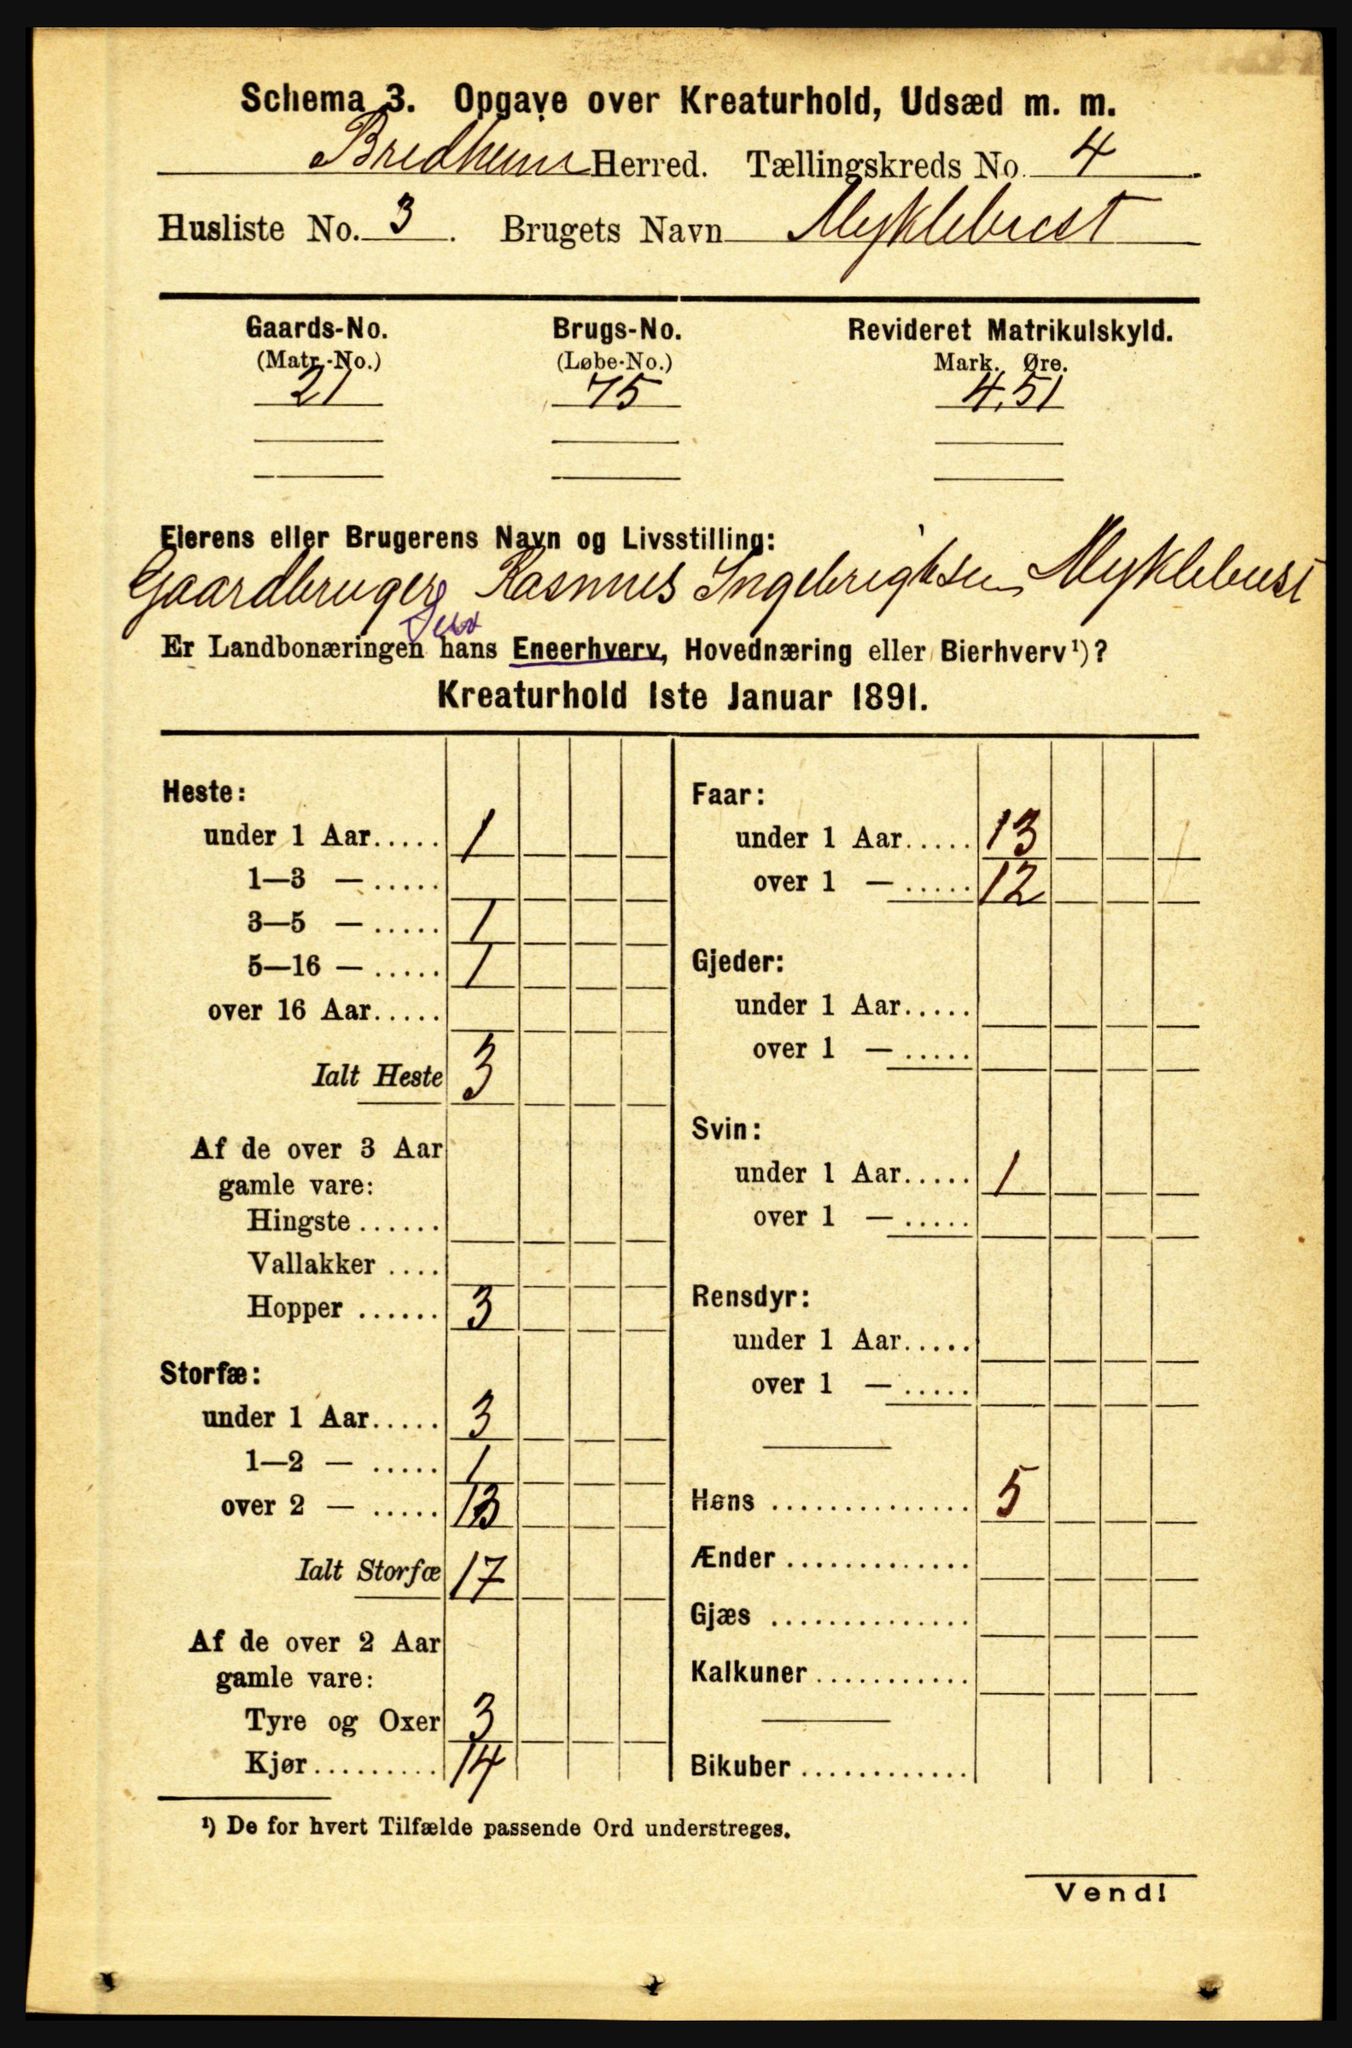 Schema 3. Opgave over Kreaturhold, Udsæd m. m.
Bredheim Herred. Tællingskreds No. 4
Husliste No. 3. Brugets Navn Myklebust
Gaards-No. Brugs-No. Revideret Matrikulskyld.
(Matr.-No.) (Løbe-No.) Mark. Øre.
21 75 4,51
Eierens eller Brugerens Navn og Livsstilling:
Gaardbruger Rasmus Ingebrigtsen Myklebust
Er Landbonæringen hans Eneerhverv, Hovednæring eller Bierhverv¹)?
Kreaturhold 1ste Januar 1891.
Heste:
under 1 Aar..... 1
1—3 — .....
3—5 — ..... 1
5—16 — ..... 1
over 16 Aar.....
Ialt Heste 3
Af de over 3 Aar
gamle vare:
Hingste ......
Vallakker ....
Hopper ...... 3
Storfæ:
under 1 Aar..... 3
1—2 — ..... 1
over 2 — ..... 13
Ialt Storfæ 17
Af de over 2 Aar
gamle vare:
Tyre og Oxer 3
Kjør......... 14
Faar:
under 1 Aar..... 13
over 1 — ..... 12
Gjeder:
under 1 Aar.....
over 1 — .....
Svin:
under 1 Aar..... 1
over 1 — .....
Rensdyr:
under 1 Aar.....
over 1 — .....
Høns .............. 5
Ænder .............
Gjæs ..............
Kalkuner...........
Bikuber ............
¹) De for hvert Tilfælde passende Ord understreges.
Vend!